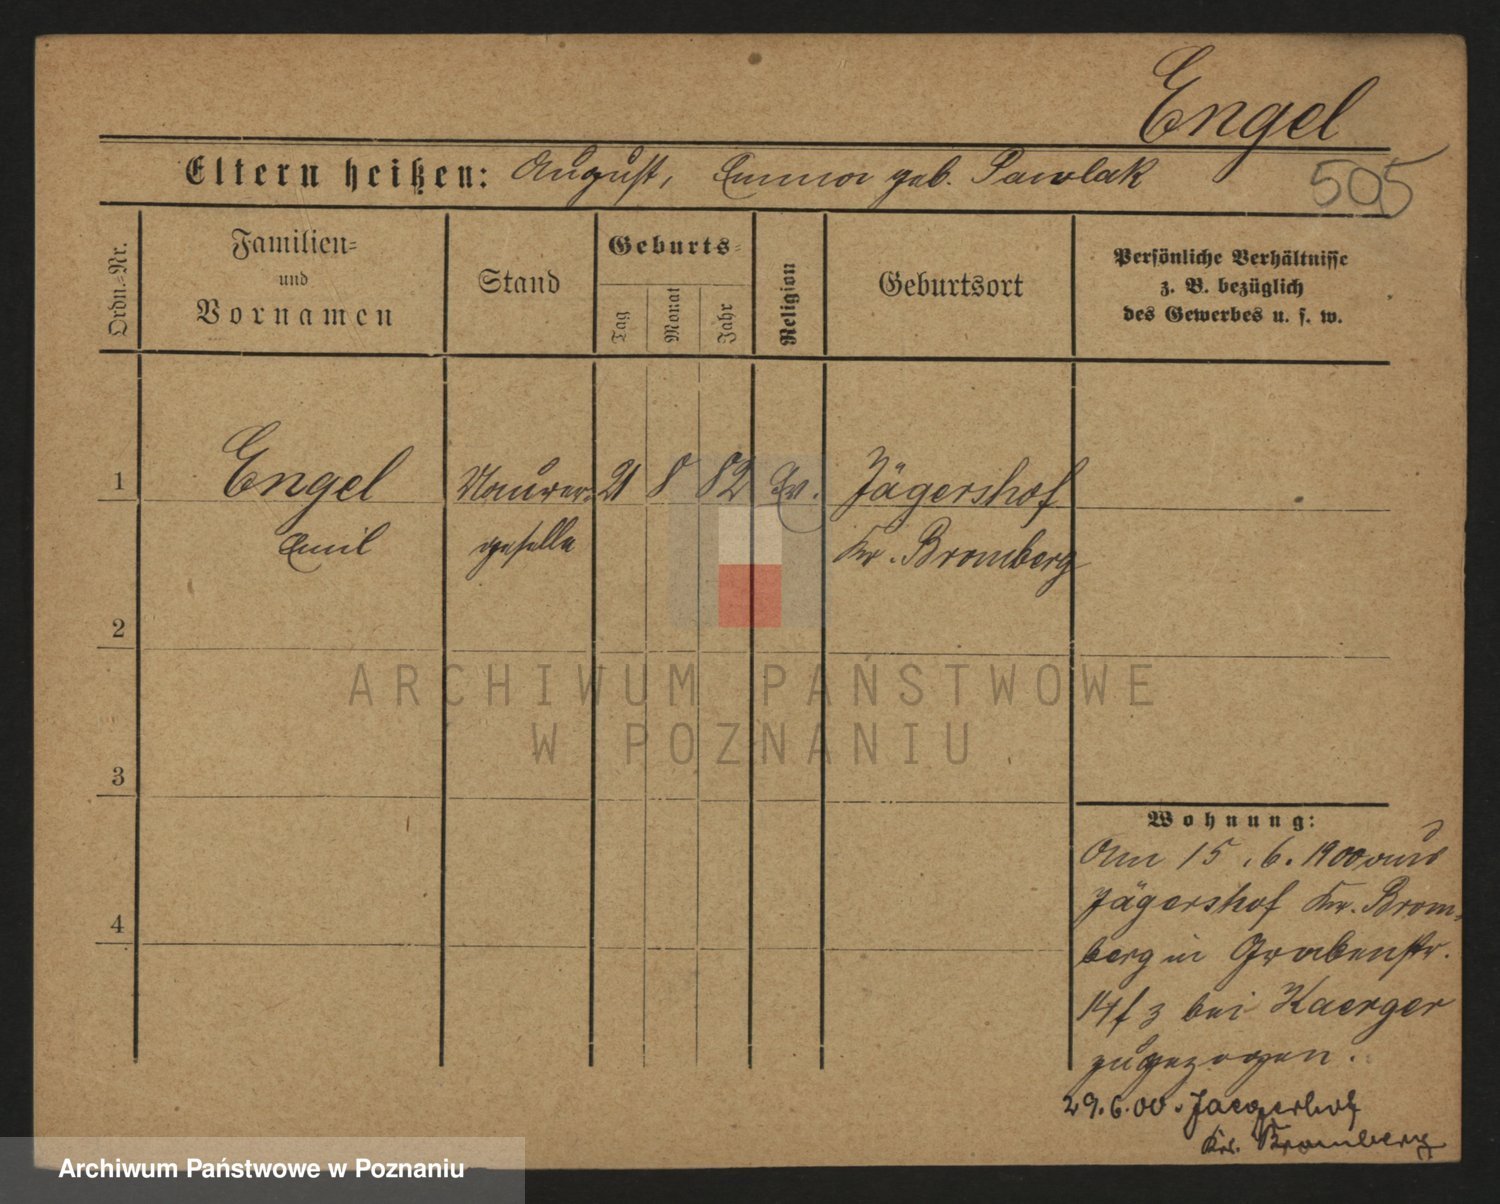 Engel
505
Eltern heißen: August, Emma geb. Pawlak
Ordn.-Nr.
Familien-
und
Vornamen
Stand
Geburts-
Tag
Monat
Jahr
Religion
Geburtsort
Persönliche Verhältnisse
z. B. bezüglich
des Gewerbes u. s. w.
1
Engel
Maurer-
21
8
82
Ev.
Jägershof
Emil
geselle
Kr. Bromberg
2
ARCHIWUM PAŃSTWOWE
W POZNANIU
3
4
Wohnung:
Am 15.6.1900 aus
Jägershof Kr. Brom-
berg in Grabenstr.
14 f 3 bei Kaerger
zugezogen.
29.6.00. Jaegerhof
Krs. Bromberg
Archiwum Państwowe w Poznaniu